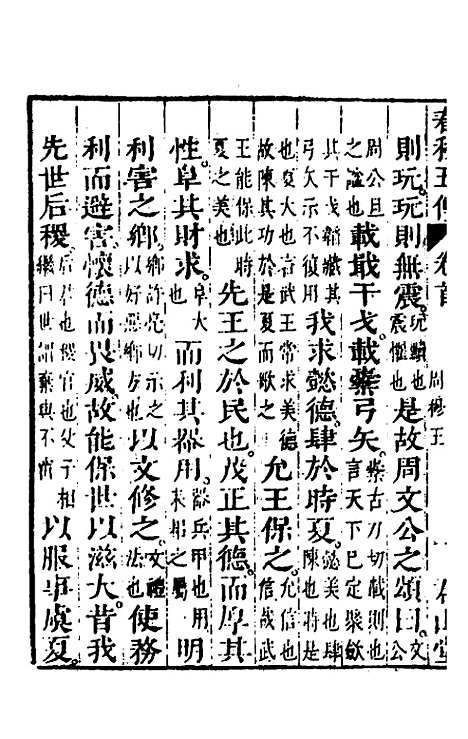 春秋五傳 卷首 周穆王 一
則玩玩則無震玩黷也震懼也是故周文公之頌曰文公
周公旦之謚也載戢干戈載櫜弓矢言天下已定聚斂
其干戈韜藏其弓矢示不復用我求懿德肆於時夏懿美也肆陳也時是
也夏大也言武王常求美德故陳其功於是夏而歌之允王保之允信也信哉武
王能保此時夏之美也先王之於民也茂正其德而厚其
性阜其財求阜大也而利其器用器兵甲也用耒耜之屬明
利害之鄉鄉許亮切示之以好惡鄉方也以文修之文禮法也使務
利而避害懷德而畏威故能保世以滋大昔我
先世后稷后君也稷官也父子相繼曰世謂棄與不窋以服事虞夏